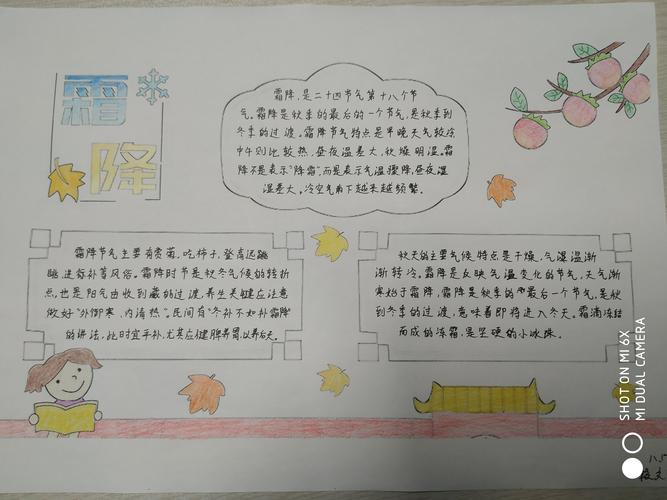 霜降
霜降,是二十四节气第十八个节
气。霜降是秋季的最后的一个节气,是秋季到
冬季的过渡。霜降节气特点是早晚天气较冷
中午则比较热,昼夜温差大,秋燥明显。霜
降不是表示"降霜",而是表示气温骤降,昼夜温
温差大。冷空气南下越来越频繁。
霜降节气主要有赏菊,吃柿子,登高远眺
眺,进行补等风俗。霜降时节是秋冬气候的转折
点,也是阳气由收到藏的过渡,养生关键应注意
做好"外御寒、内清热"。民间有"冬补不如补霜降"
的讲法,此时宜平补,尤其应健脾养胃,以养后天。
秋天的主要气候特点是干燥,气温温渐
渐转冷。霜降是反映气温变化的节气,天气渐
寒始于霜降,霜降是秋季的最后一个节气,是秋
到冬季的过渡,意味着即将进入冬天。霜滴冻结
而成的冻霜,是坚硬的小冰珠。
SHOT ON MI 6X
MI DUAL CAMERA